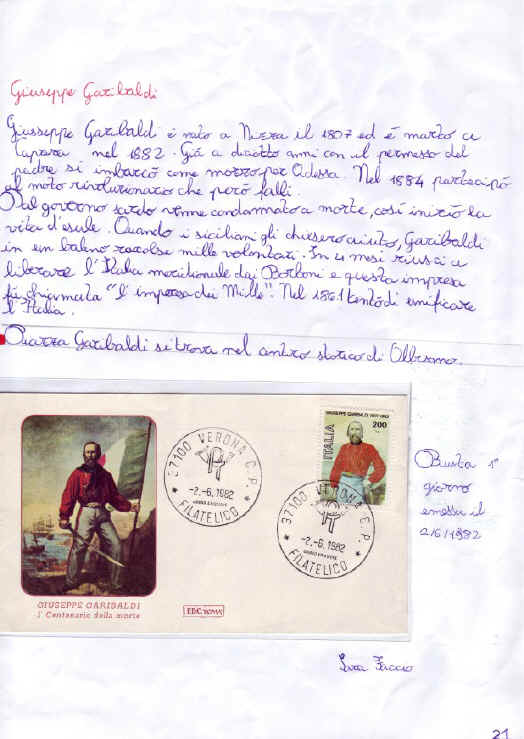 Giuseppe Garibaldi
Giusseppe Garibaldi è nato a Nizza il 1807 ed è morto a
Caprera nel 1882. Già a diciotto anni con il permesso del
padre si imbarcò come mozzo per Odessa. Nel 1834 partecipò
al moto rivoluzionario che però fallì.
Dal governo sardo venne condannato a morte, così iniziò la
vita d'esule. Quando i siciliani gli chiesero aiuto, Garibaldi
in un baleno raccolse mille volontari. In 4 mesi riuscì a
liberare l'Italia meridionale dai Borboni e questa impresa
fu chiamata "l'impresa dei Mille". Nel 1861 tentò di unificare
l'Italia.
Piazza Garibaldi si trova nel centro storico di
GIUSEPPE GARIBALDI 1807-1882
200
ITALIA
37100 VERONA C.P.
-2.-6.1982
FILATELICO
37100 VERONA C.P.
-2.-6.1982
FILATELICO
Busta 1°
giorno
emessa il
2/6/1982
GIUSEPPE GARIBALDI
1° Centenario della morte
F.D.C. ROMA
Luca
21